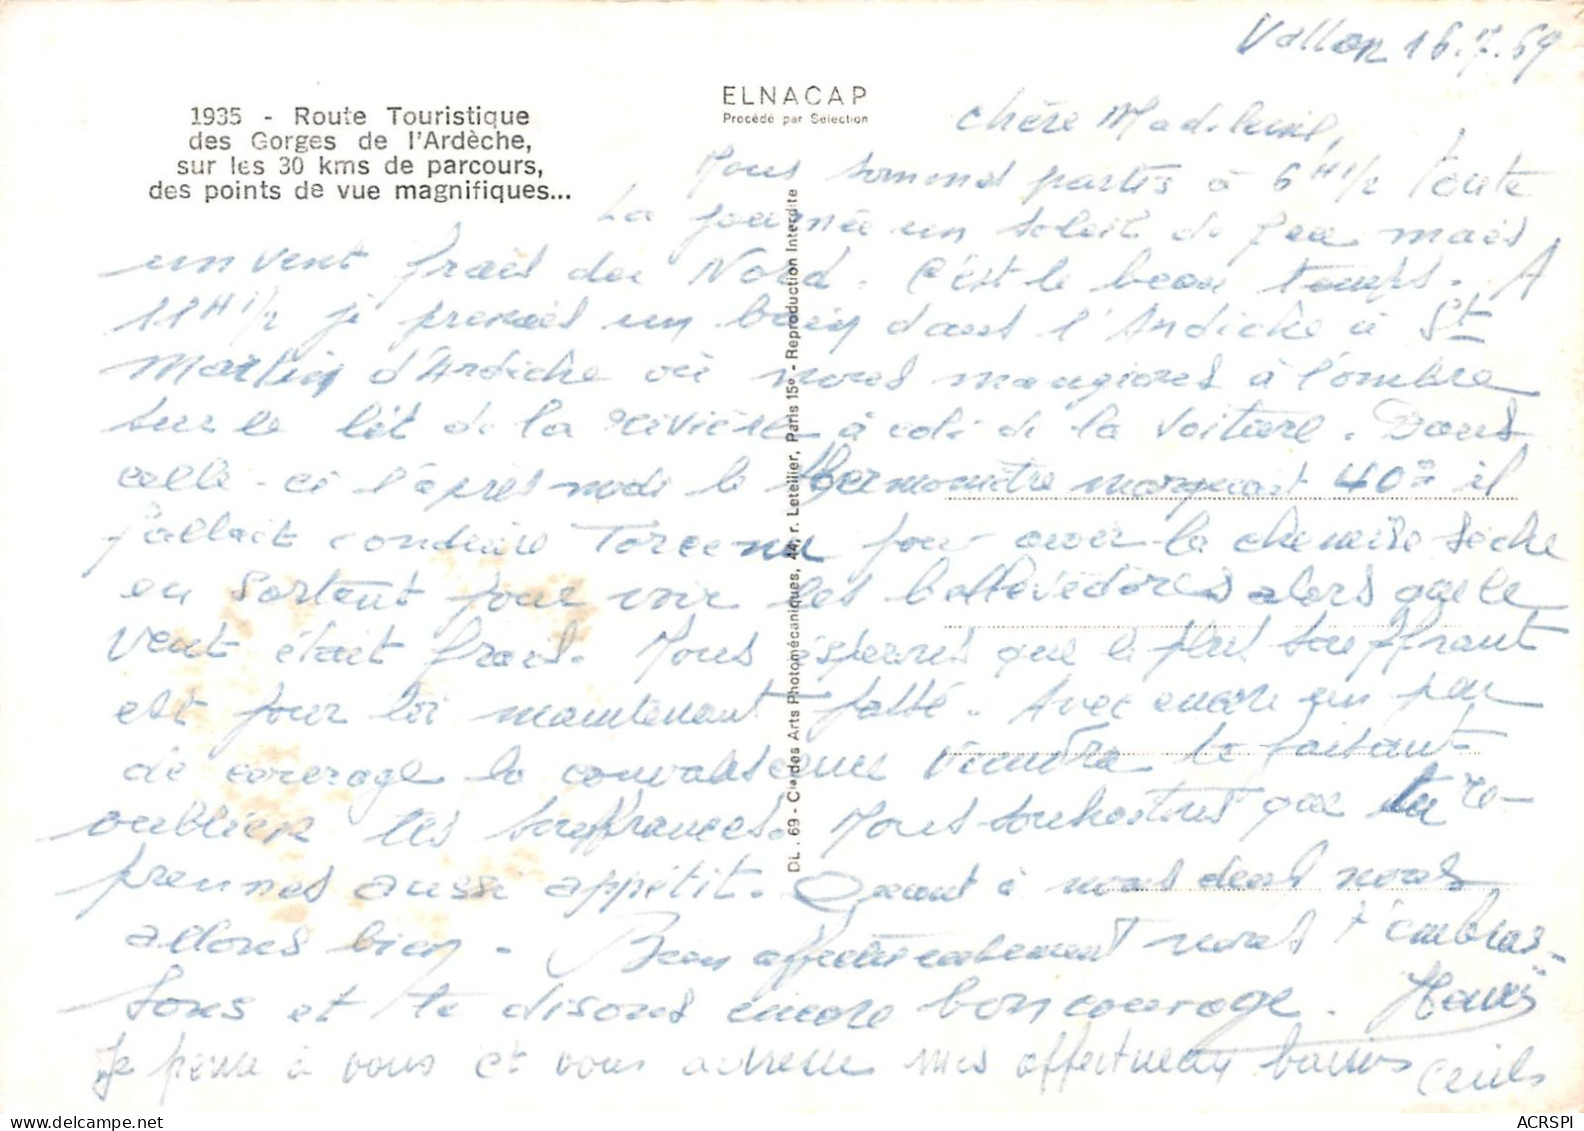 Vallon 16.7.69
ELNACAP
Procédé par Sélection
1935 - Route Touristique
des Gorges de l'Ardèche,
sur les 30 kms de parcours,
des points de vue magnifiques...
Chère
Nous sommes partis à 6 H 1/2 toute
La journée un soleil de feu mais
un vent frais du Nord. C'est le beau temps. A
11 H 1/2 je prenais un bain dans l'Ardèche à St
Martin d'Ardèche où nous mangions à l'ombre
sur le lit de la rivière à coté de la voiture. Dans
celle-ci l'après midi le thermomètre marquait 40° il
fallait conduire Torse nu pour avoir la chemise sèche
en sortant pour voir les bellevédères alors que le
vent était frais. Nous espérons que le plus souffrant
est pour toi maintenant passé. Avec encore un peu
de courage la convalescence viendra te faisant
oublier les souffrances. Nous souhaitons que tu re-
prennes aussi appétit. Quant à nous deux nous
allons bien. Bien affectueusement nous t'embras-
sons et te disons encore bon courage. Henri
Je pense à vous et vous adresse mes affectueux baisers
DL. 69 - Cie des Arts Photomécaniques, 44, r. Letellier, Paris 15e - Reproduction Interdite
ACRSPI